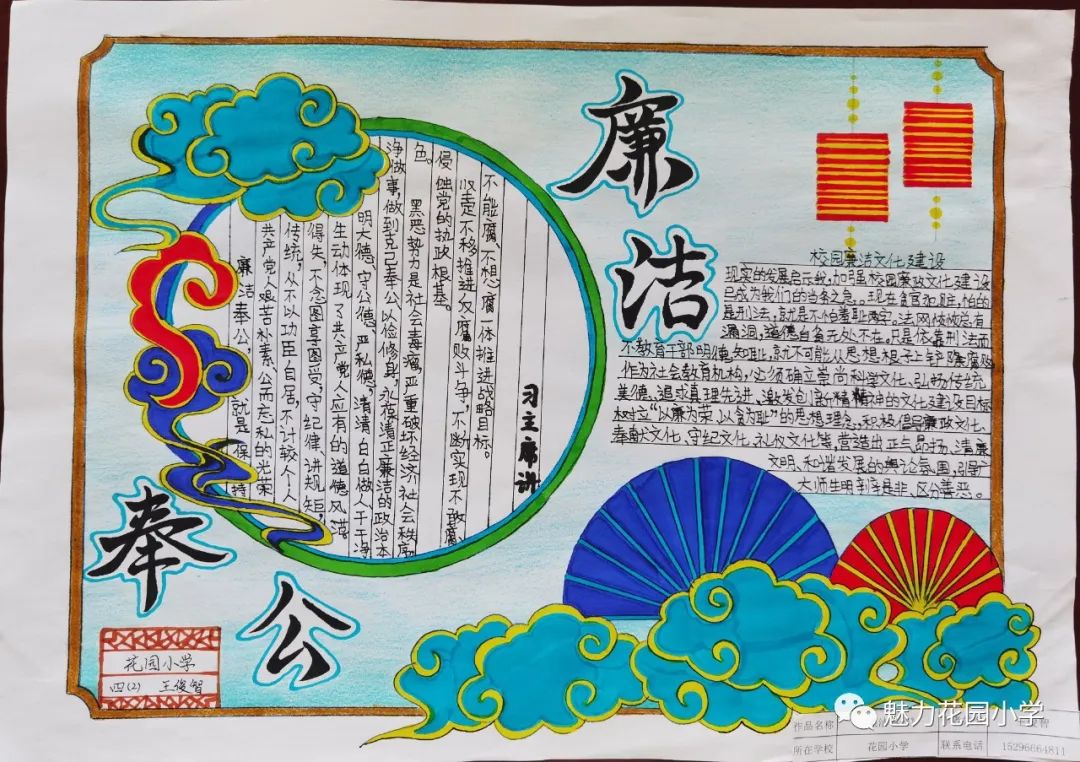 廉洁
奉公
廉洁奉公，就是保持
共产党人艰苦朴素、公而忘私的光荣
传统，从不以功臣自居，不计较个人
得失，不念图享图受，守纪律讲规矩，
生动体现了共产党人应有的道德风范
明大德、守公德、严私德，清清白白做人、干干净
净做事，做到克己奉公以俭修身，永葆清正廉洁的政治本
色。
黑恶势力是社会毒瘤，严重破坏经济社会秩序
侵蚀党的执政根基。
坚定不移推进反腐败斗争，不断实现不敢腐、
不能腐、不想腐一体推进战略目标。
习主席讲
校园廉洁文化建设
现实的发展启示我，加强校园廉政文化建设
已成为我们的当务之急。现在贪官犯脏，怕的
是刑法，就是不怕羞耻两字。法网恢恢总有
漏洞，道德自省无处不在。只是依靠刑法而
不教育干部明德知耻，就不可能从思想根子上铲除腐败
作为社会教育机构，必须确立崇尚科学文化、弘扬传统
美德、追求真理先进、激发创新精神的文化建设目标
树立“以廉为荣，以贪为耻”的思想理念，积极倡导廉政文化、
奉献文化、守纪文化、礼仪文化等，营造出正气昂扬、清廉
文明、和谐发展的舆论氛围，引导广
大师生明辨是非、区分善恶。
花园小学
四(2) 王俊智
魅力花园小学
作品名称
所在学校 花园小学 联系电话 15296664811